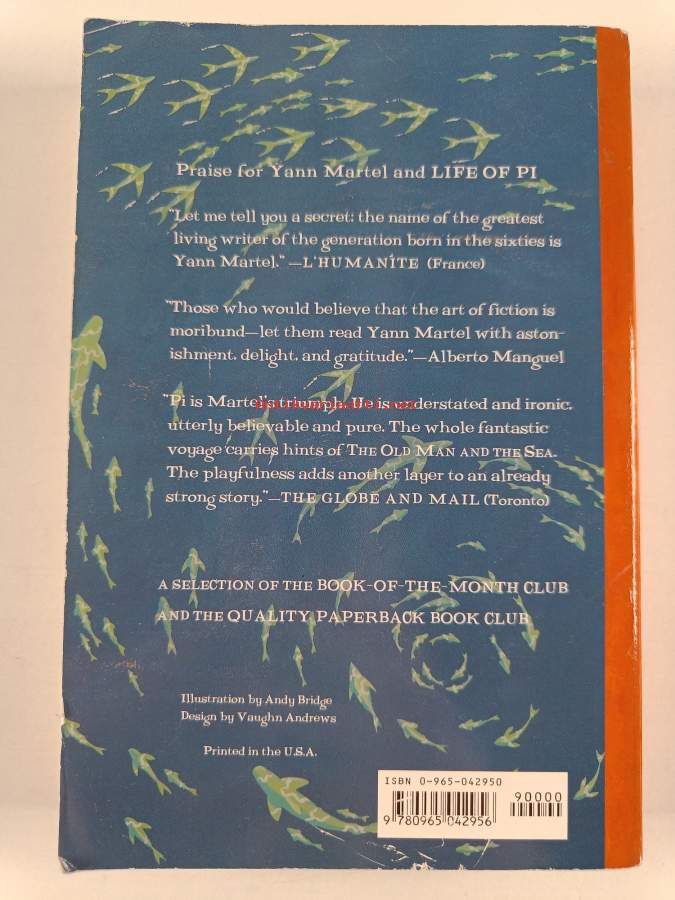 Praise for Yann Martel and LIFE OF PI
"Let me tell you a secret: the name of the greatest
living writer of the generation born in the sixties is
Yann Martel."—L'HUMANITE (France)
"Those who would believe that the art of fiction is
moribund—let them read Yann Martel with aston-
ishment, delight, and gratitude."—Alberto Manguel
"Pi is Martel's triumph. He is understated and ironic,
utterly believable and pure. The whole fantastic
voyage carries hints of THE OLD MAN AND THE SEA.
The playfulness adds another layer to an already
strong story."—THE GLOBE AND MAIL (Toronto)
A SELECTION OF THE BOOK-OF-THE-MONTH CLUB
AND THE QUALITY PAPERBACK BOOK CLUB
Illustration by Andy Bridge
Design by Vaughn Andrews
Printed in the U.S.A.
ISBN 0-965-042950
90000
9 780965 042956